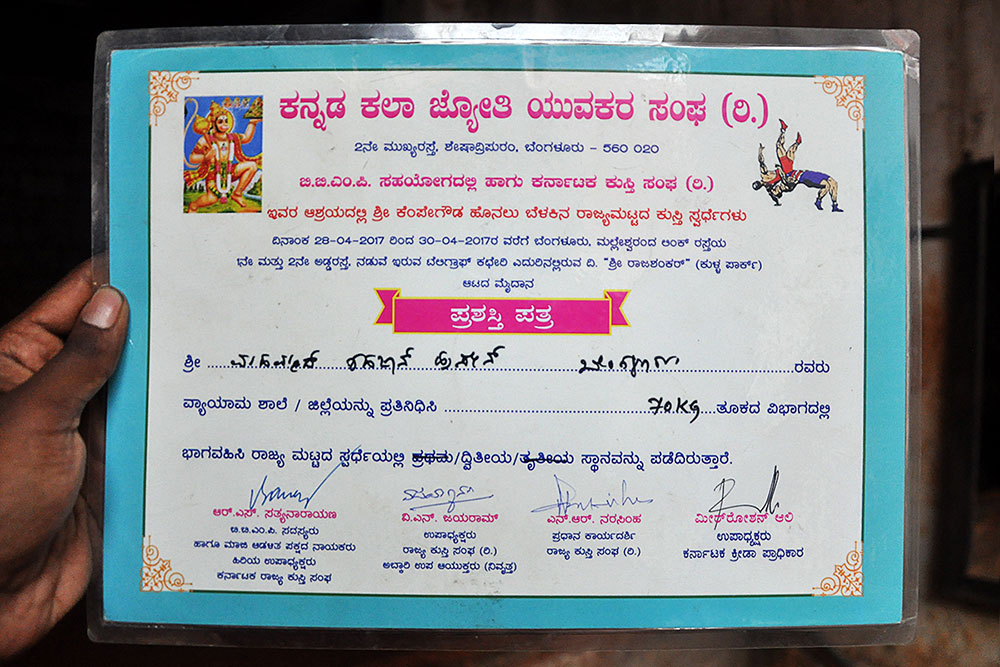 ಕನ್ನಡ ಕಲಾ ಜ್ಯೋತಿ ಯುವಕರ ಸಂಘ (ರಿ.)
2ನೇ ಮುಖ್ಯರಸ್ತೆ, ಶೇಷಾದ್ರಿಪುರಂ, ಬೆಂಗಳೂರು - 560 020
ಬಿ.ಬಿ.ಎಂ.ಪಿ. ಸಹಯೋಗದಲ್ಲಿ ಹಾಗು ಕರ್ನಾಟಕ ಕುಸ್ತಿ ಸಂಘ (ರಿ.)
ಇವರ ಆಶ್ರಯದಲ್ಲಿ ಶ್ರೀ ಕೆಂಪೇಗೌಡ ಹೊನಲು ಬೆಳಕಿನ ರಾಜ್ಯಮಟ್ಟದ ಕುಸ್ತಿ ಸ್ಪರ್ಧೆಗಳು
ದಿನಾಂಕ 28-04-2017 ರಿಂದ 30-04-2017ರ ವರೆಗೆ ಬೆಂಗಳೂರು, ಮಲ್ಲೇಶ್ವರಂದ ಲಿಂಕ್ ರಸ್ತೆಯ
1ನೇ ಮತ್ತು 2ನೇ ಅಡ್ಡರಸ್ತೆ, ನಡುವೆ ಇರುವ ಟೆಲಿಗ್ರಾಫ್ ಕಛೇರಿ ಎದುರಿನಲ್ಲಿರುವ ದಿ. "ಶ್ರೀ ರಾಜಶಂಕರ್" (ಕುಳ್ಳ ಪಾರ್ಕ್)
ಆಟದ ಮೈದಾನ
ಪ್ರಶಸ್ತಿ ಪತ್ರ
ಶ್ರೀ ರವರು
ವ್ಯಾಯಾಮ ಶಾಲೆ / ಜಿಲ್ಲೆಯನ್ನು ಪ್ರತಿನಿಧಿಸಿ 70KG ತೂಕದ ವಿಭಾಗದಲ್ಲಿ
ಭಾಗವಹಿಸಿ ರಾಜ್ಯ ಮಟ್ಟದ ಸ್ಪರ್ಧೆಯಲ್ಲಿ ಪ್ರಥಮ/ದ್ವಿತೀಯ/ತೃತೀಯ ಸ್ಥಾನವನ್ನು ಪಡೆದಿರುತ್ತಾರೆ.
ಆರ್.ಎಸ್. ಸತ್ಯನಾರಾಯಣ
ಬಿ.ಬಿ.ಎಂ.ಪಿ. ಸದಸ್ಯರು
ಹಾಗೂ ಮಾಜಿ ಆಡಳಿತ ಪಕ್ಷದ ನಾಯಕರು
ಹಿರಿಯ ಉಪಾಧ್ಯಕ್ಷರು
ಕರ್ನಾಟಕ ರಾಜ್ಯ ಕುಸ್ತಿ ಸಂಘ
ವಿ.ಎನ್. ಜಯರಾಮ್
ಉಪಾಧ್ಯಕ್ಷರು
ರಾಜ್ಯ ಕುಸ್ತಿ ಸಂಘ (ರಿ.)
ಅಬ್ಕಾರಿ ಉಪ ಆಯುಕ್ತರು (ನಿವೃತ್ತ)
ಎನ್.ಆರ್. ನರಸಿಂಹ
ಪ್ರಧಾನ ಕಾರ್ಯದರ್ಶಿ
ರಾಜ್ಯ ಕುಸ್ತಿ ಸಂಘ (ರಿ.)
ಮೀರ್‌ರೋಶನ್ ಅಲಿ
ಉಪಾಧ್ಯಕ್ಷರು
ಕರ್ನಾಟಕ ಕ್ರೀಡಾ ಪ್ರಾಧಿಕಾರ